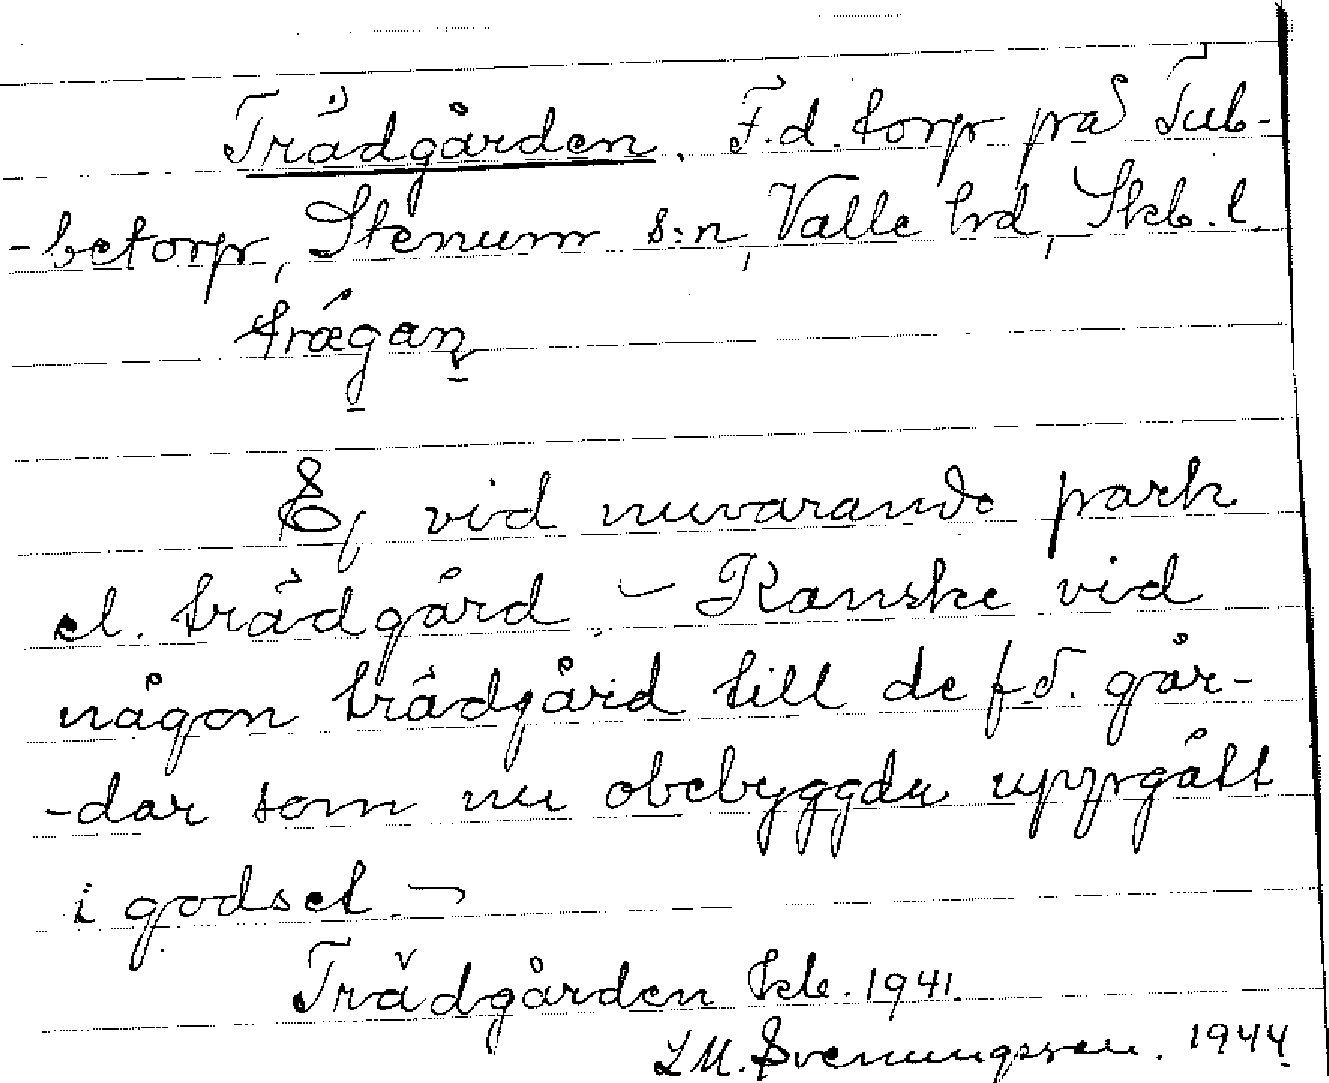 Trädgården. F.d. torp på Tub-
-betorp, Stenum s:n, Valle hd, Skb. l.
trægan
Ej vid nuvarande park
el. trädgård. - Kanske vid
någon trädgård till de f.d. går-
-dar som nu obebyggda uppgått
i godset. -
Trädgården Skb. 1941.
L.M. Svenungsson. 1944